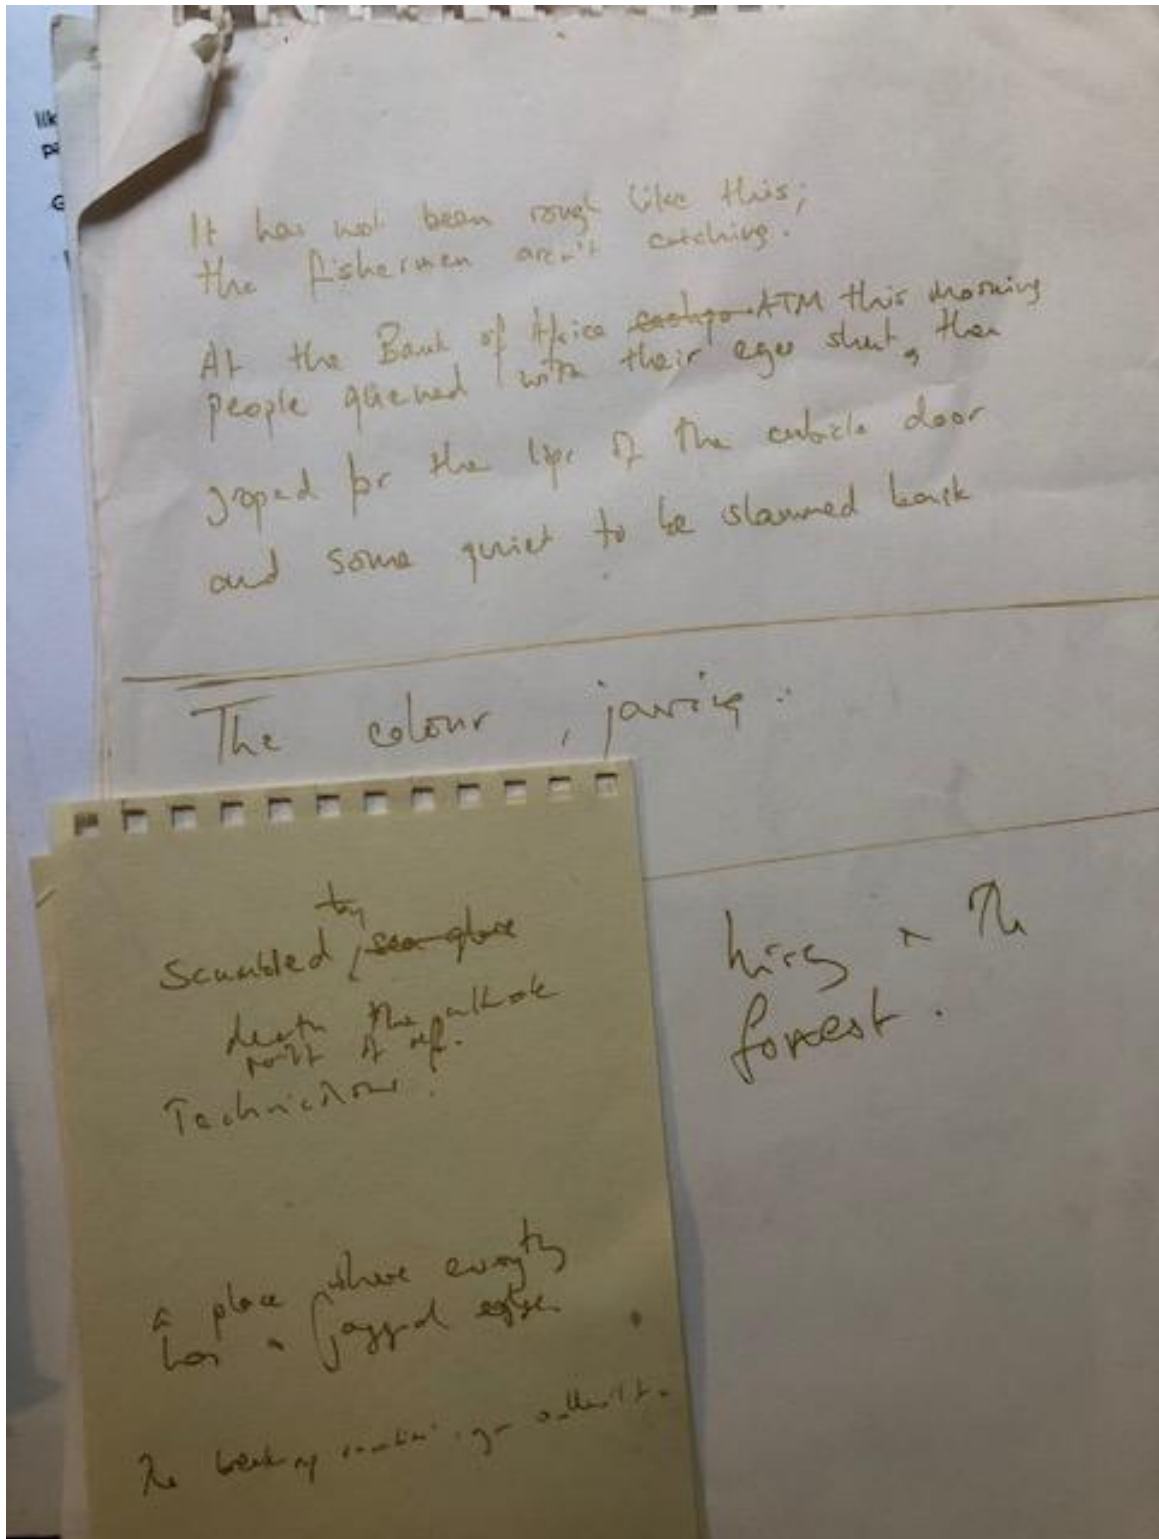 lik
pa
G
It has not been rough like this;
the fishermen aren't catching.
At the Bank of Africa ATM this morning
people queued with their eyes shut, then
groped for the lips of the cubicle door
and some quiet to be slammed back
The colour, jarring.
Scumbled
death the
Technicolour.
a place where everyth
has a jagged edge.
The
in the
forest.